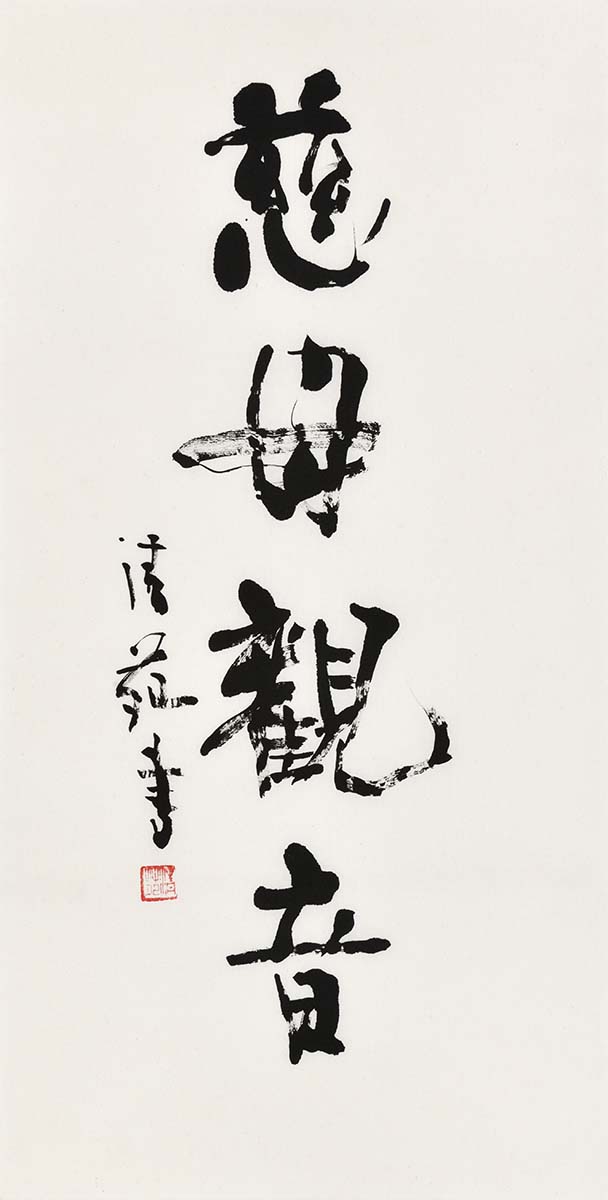 慈母觀音
清苑書